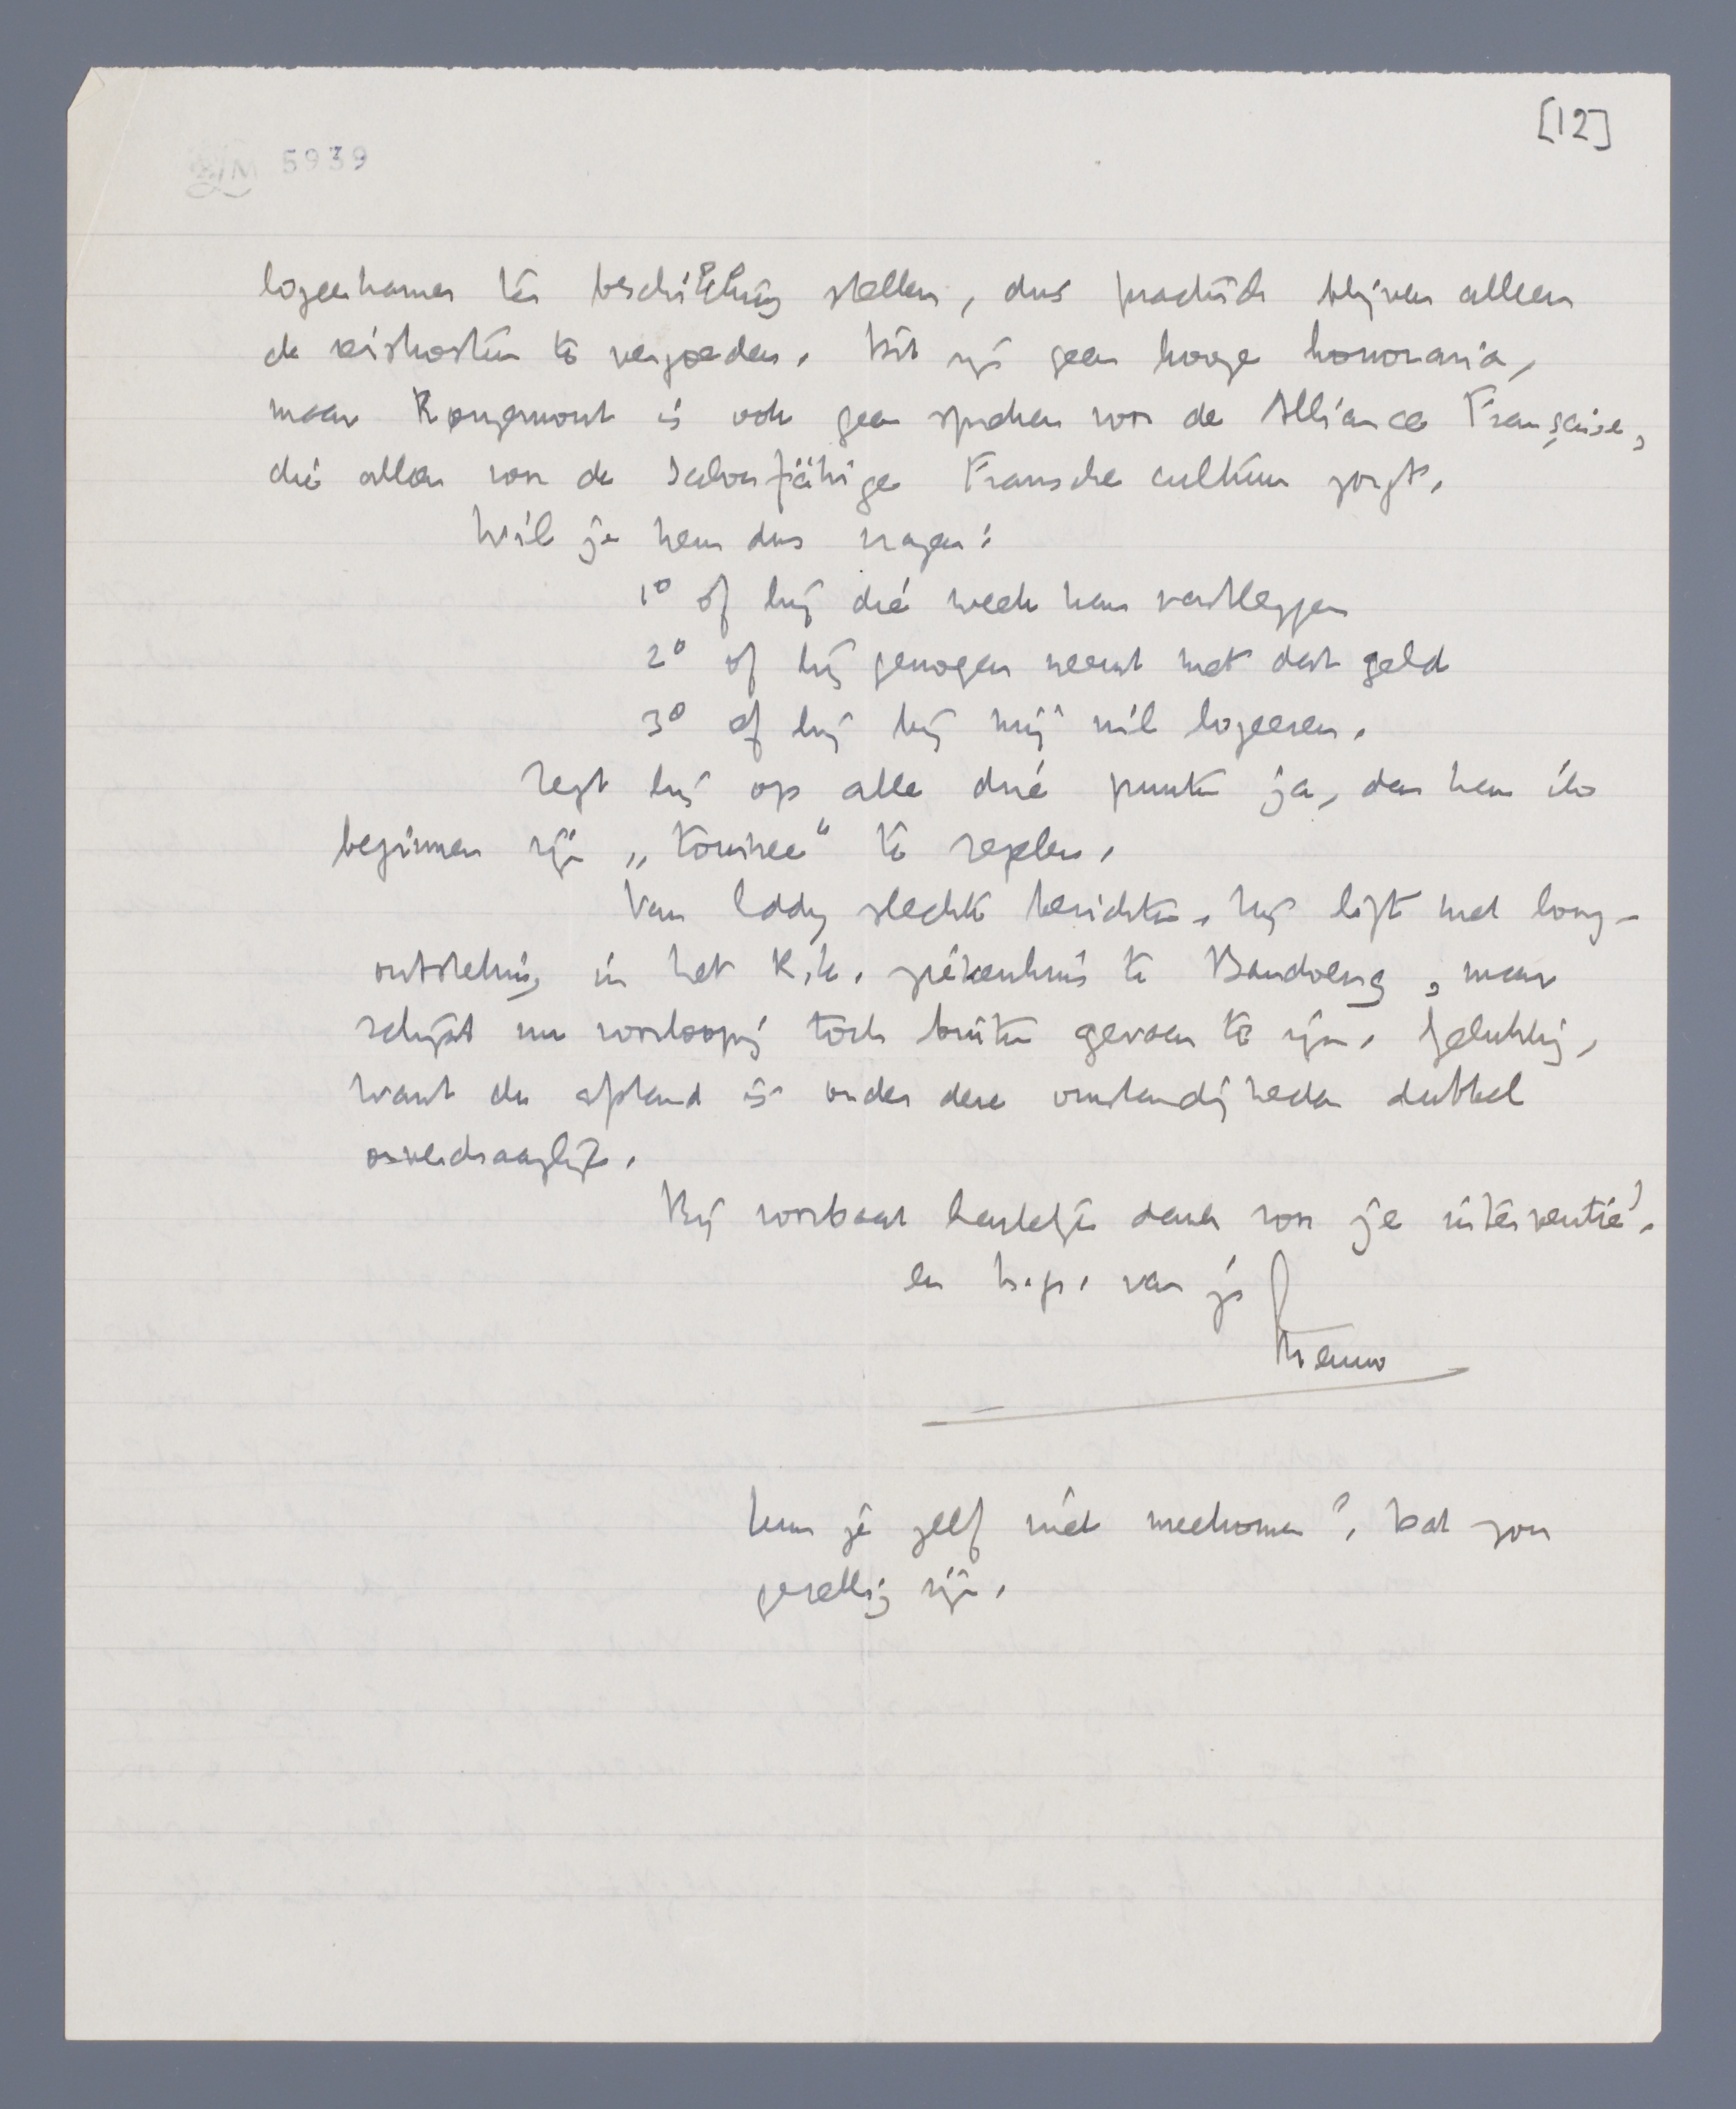 [12]
LM 5939
logeerkamer ter beschikking stellen, dus practisch blijven alleen
de reiskosten te vergoeden. Dit zijn geen hooge honoraria,
maar Rougemont is ook geen spreker voor de Alliance Française,
die alleen voor de salonfähige Fransche cultuur zorgt.
Wil je hem dus vragen:
1° of hij die week kan vastleggen
2° of hij genoegen neemt met dat geld
3° of hij bij mij wil logeeren.
Zegt hij op alle drie punten ja, dan kan ik
beginnen zijn „tournee" te regelen.
Van Eddy slechte berichten. Hij ligt met long-
ontsteking in het R.K. ziekenhuis te Bandoeng, maar
schijnt nu voorloopig toch buiten gevaar te zijn. Gelukkig,
want de afstand is onder deze omstandigheden dubbel
onverdraaglijk.
Bij voorbaat hartelijk dank voor je interventie!
en h.gr. van je
Menno
Kun je zelf niet meekomen? Dat zou
gezellig zijn.